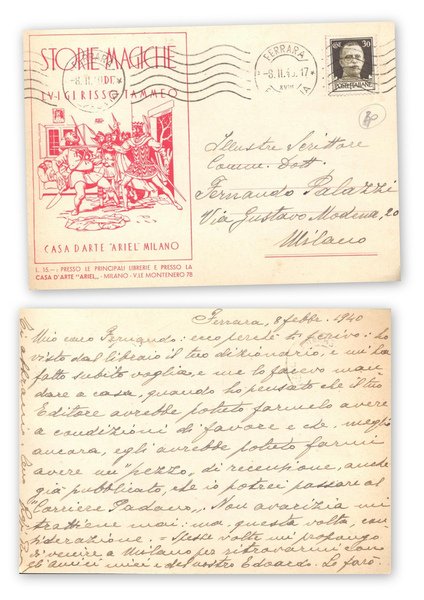 STORIE MAGICHE
DI
LUIGI RISSO TAMMEO
CASA D'ARTE "ARIEL" MILANO
L. 15.— : PRESSO LE PRINCIPALI LIBRERIE E PRESSO LA
CASA D'ARTE "ARIEL" - MILANO - V.LE MONTENERO 78
FERRARA
-8.II.40.17
XVIII
CENT. 30
POSTE ITALIANE
Illustre Scrittore
Comm. Dott.
Fernando Palazzi
Via Gustavo Modena, 20
Milano
Ferrara, 8 febbr. 1940
Mio caro Fernando: ecco perché ti scrivo: ho
visto dal libraio il tuo dizionario, e mi ha
fatto subito voglia, e me lo facevo man=
dare a casa, quando ho pensato che il tuo
Editore avrebbe potuto farmelo avere
a condizioni di favore e che, meglio
ancora, egli avrebbe potuto farmi
avere un "pezzo" di recensione, anche
già pubblicato, che io potrei passare al
"Corriere Padano". Non avarizia mi
trattiene mai: ma, questa volta, con=
siderazione. = Spesse volte mi propongo
di venire a Milano per ritrovarmi con
gli amici miei e del nostro Edoardo. Lo farò.